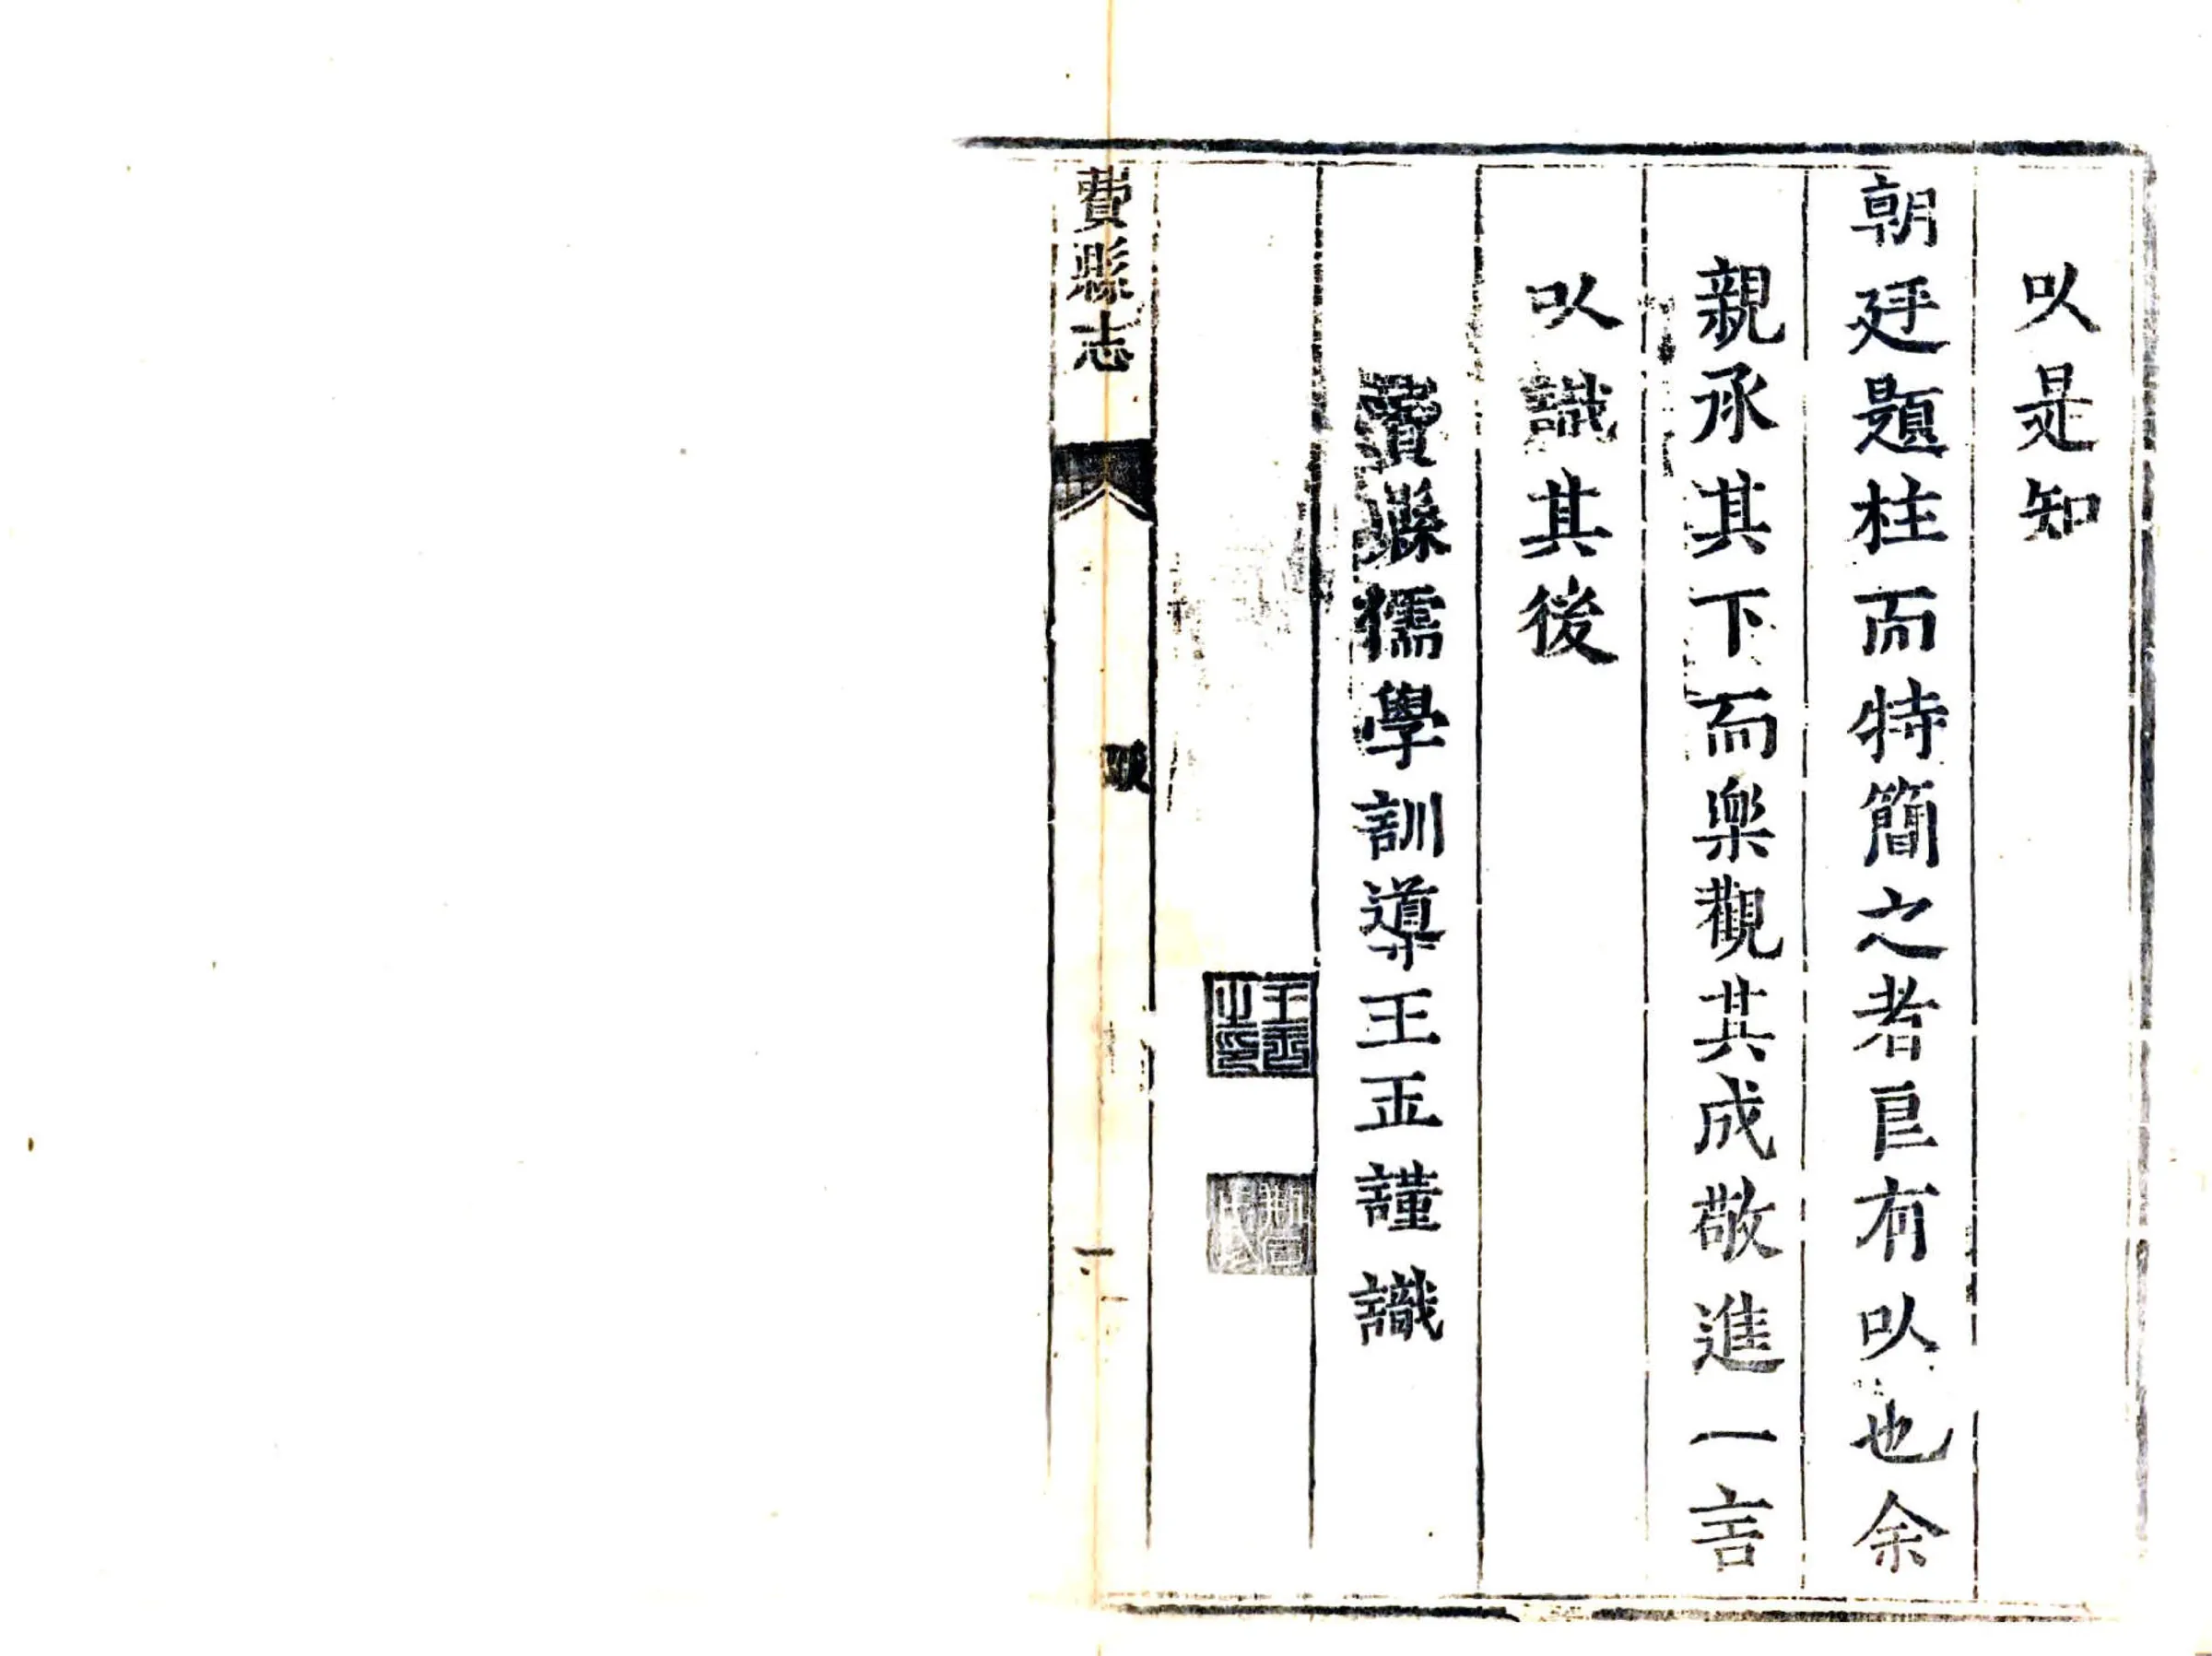 以是知
朝廷題柱而特簡之者良有以也余
親承其下而樂觀其成敬進一言
以識其後
費縣儒學訓導王正謹識
王正之印
費縣志
跋